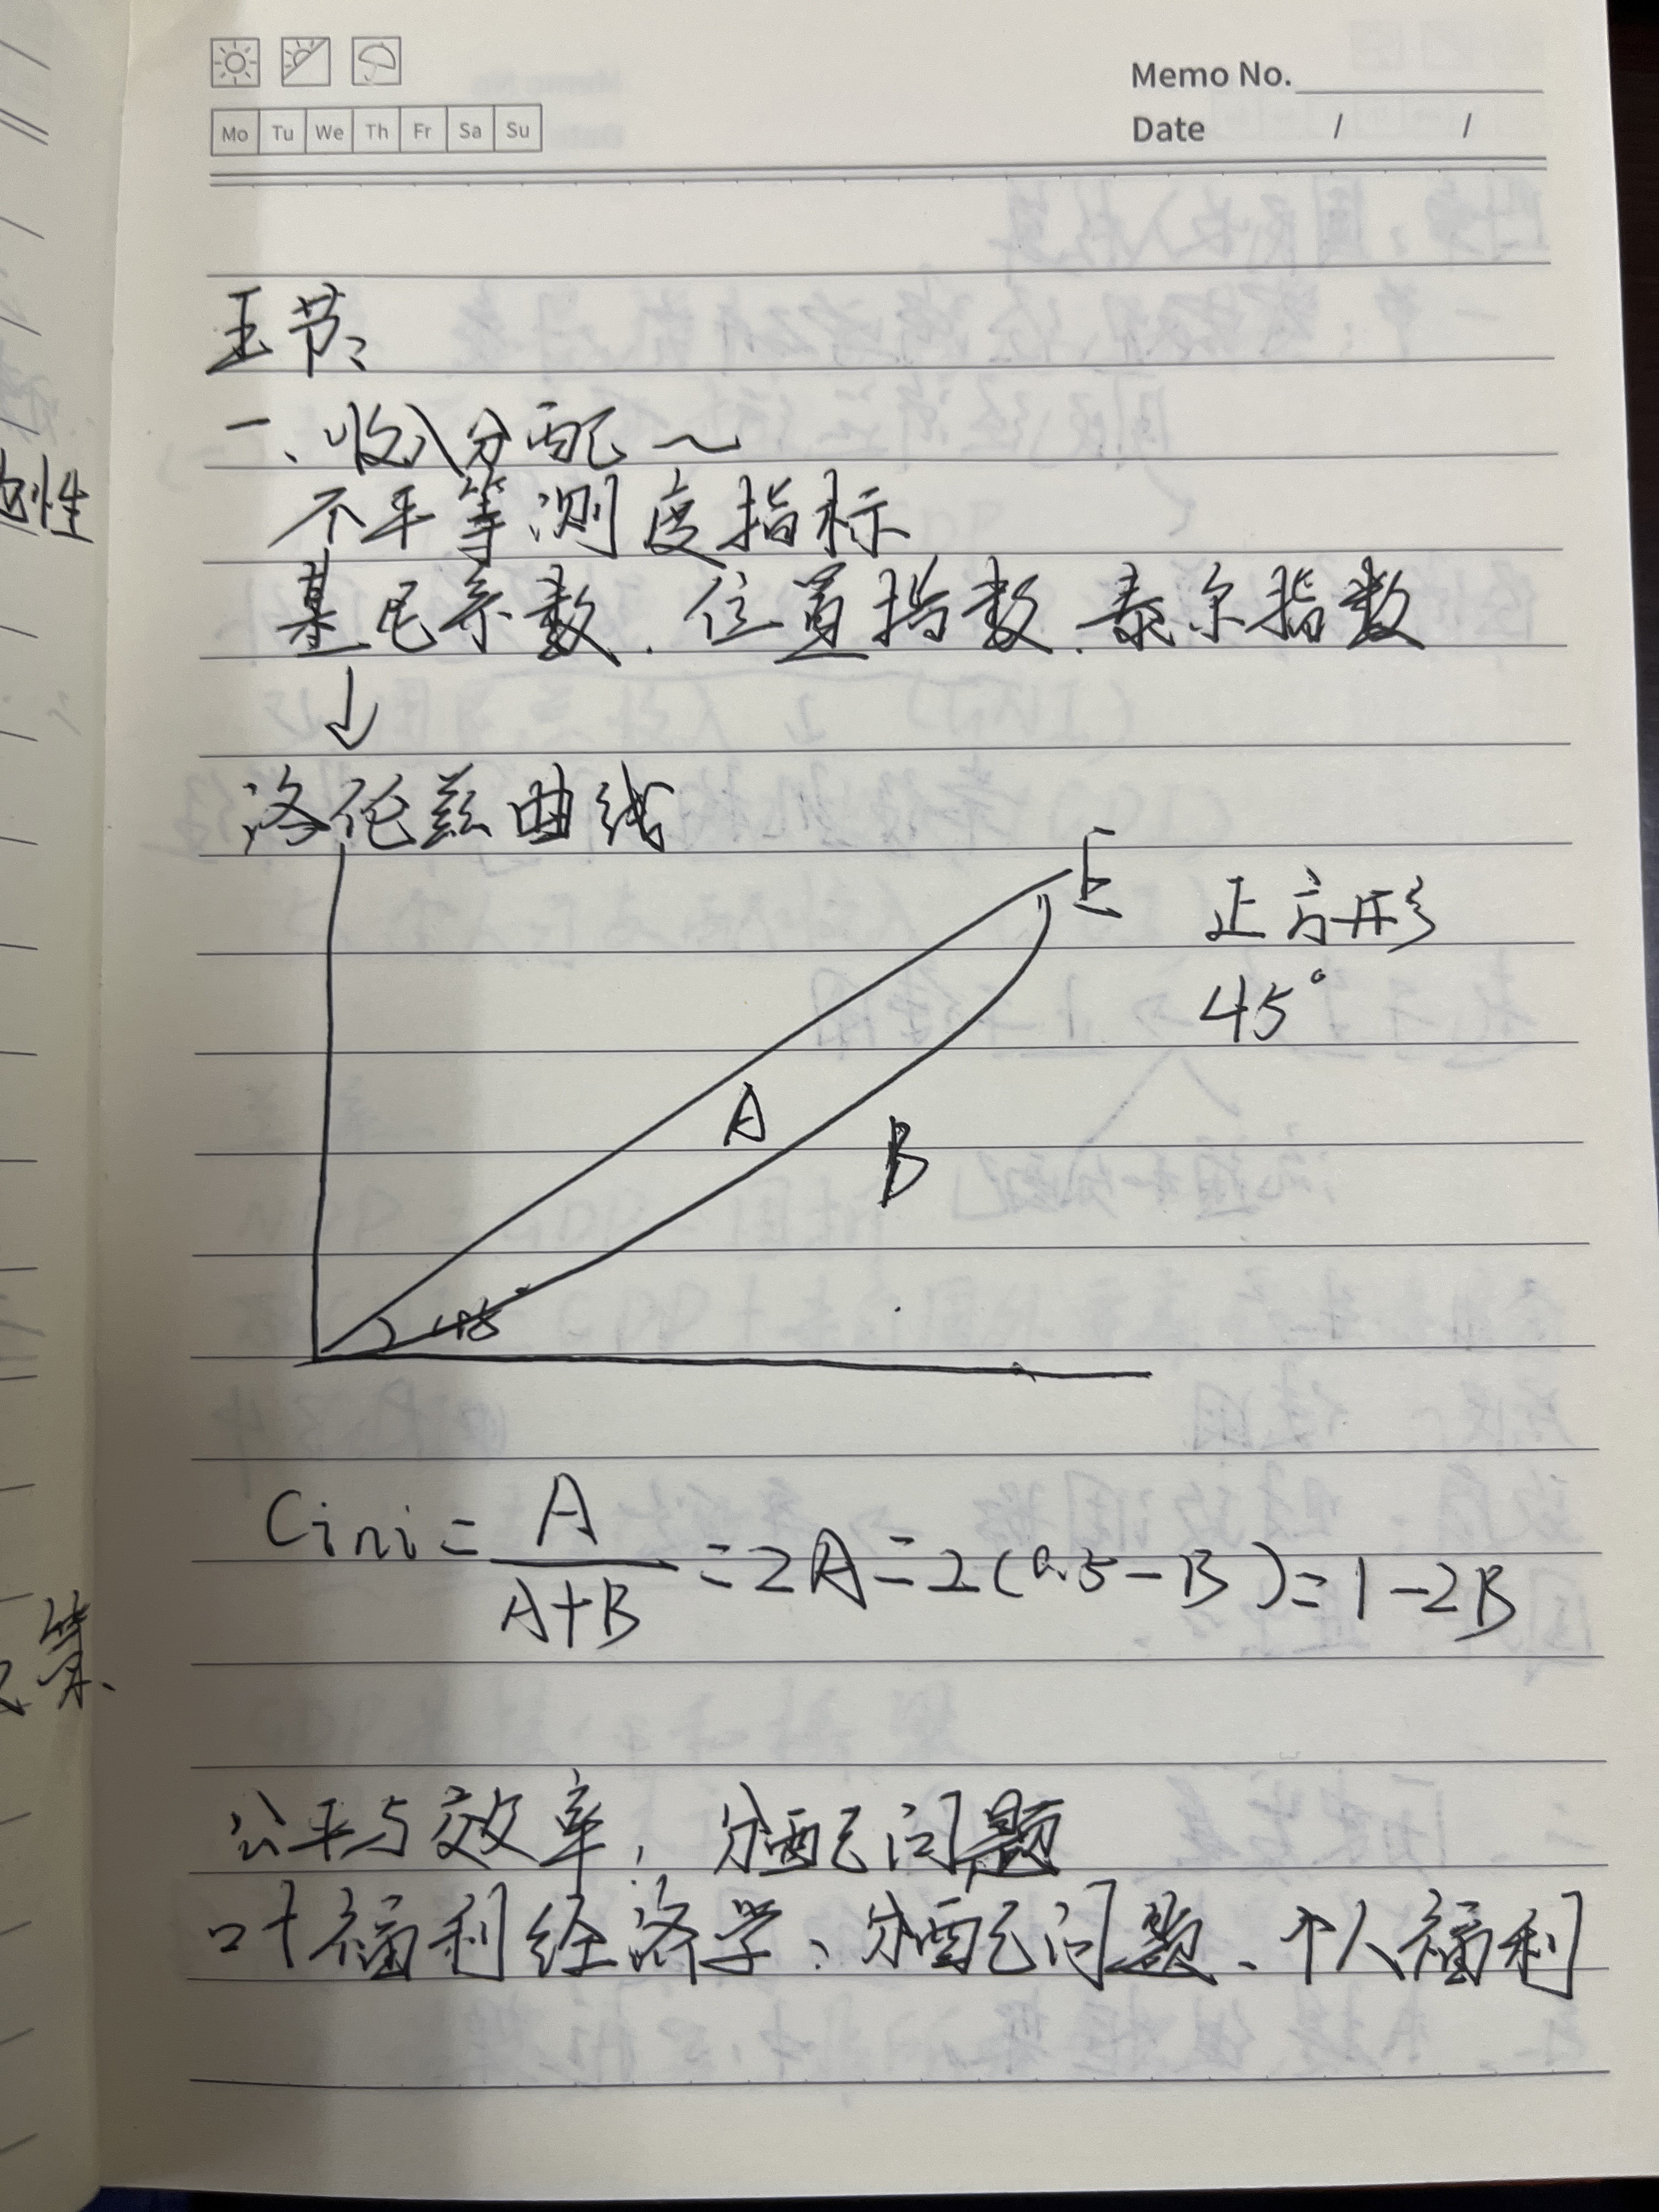 Memo No.
Mo Tu We Th Fr Sa Su
Date / /
五节、
一、收入分配～
不平等测度指标
基尼系数、位置指数、泰尔指数
↓
洛伦兹曲线
E
正方形
45°
A
B
45°
Gini = A / A+B = 2A = 2(0.5-B) = 1-2B
公平与效率，分配问题
叶福利经济学、分配问题、个人福利
性
算、